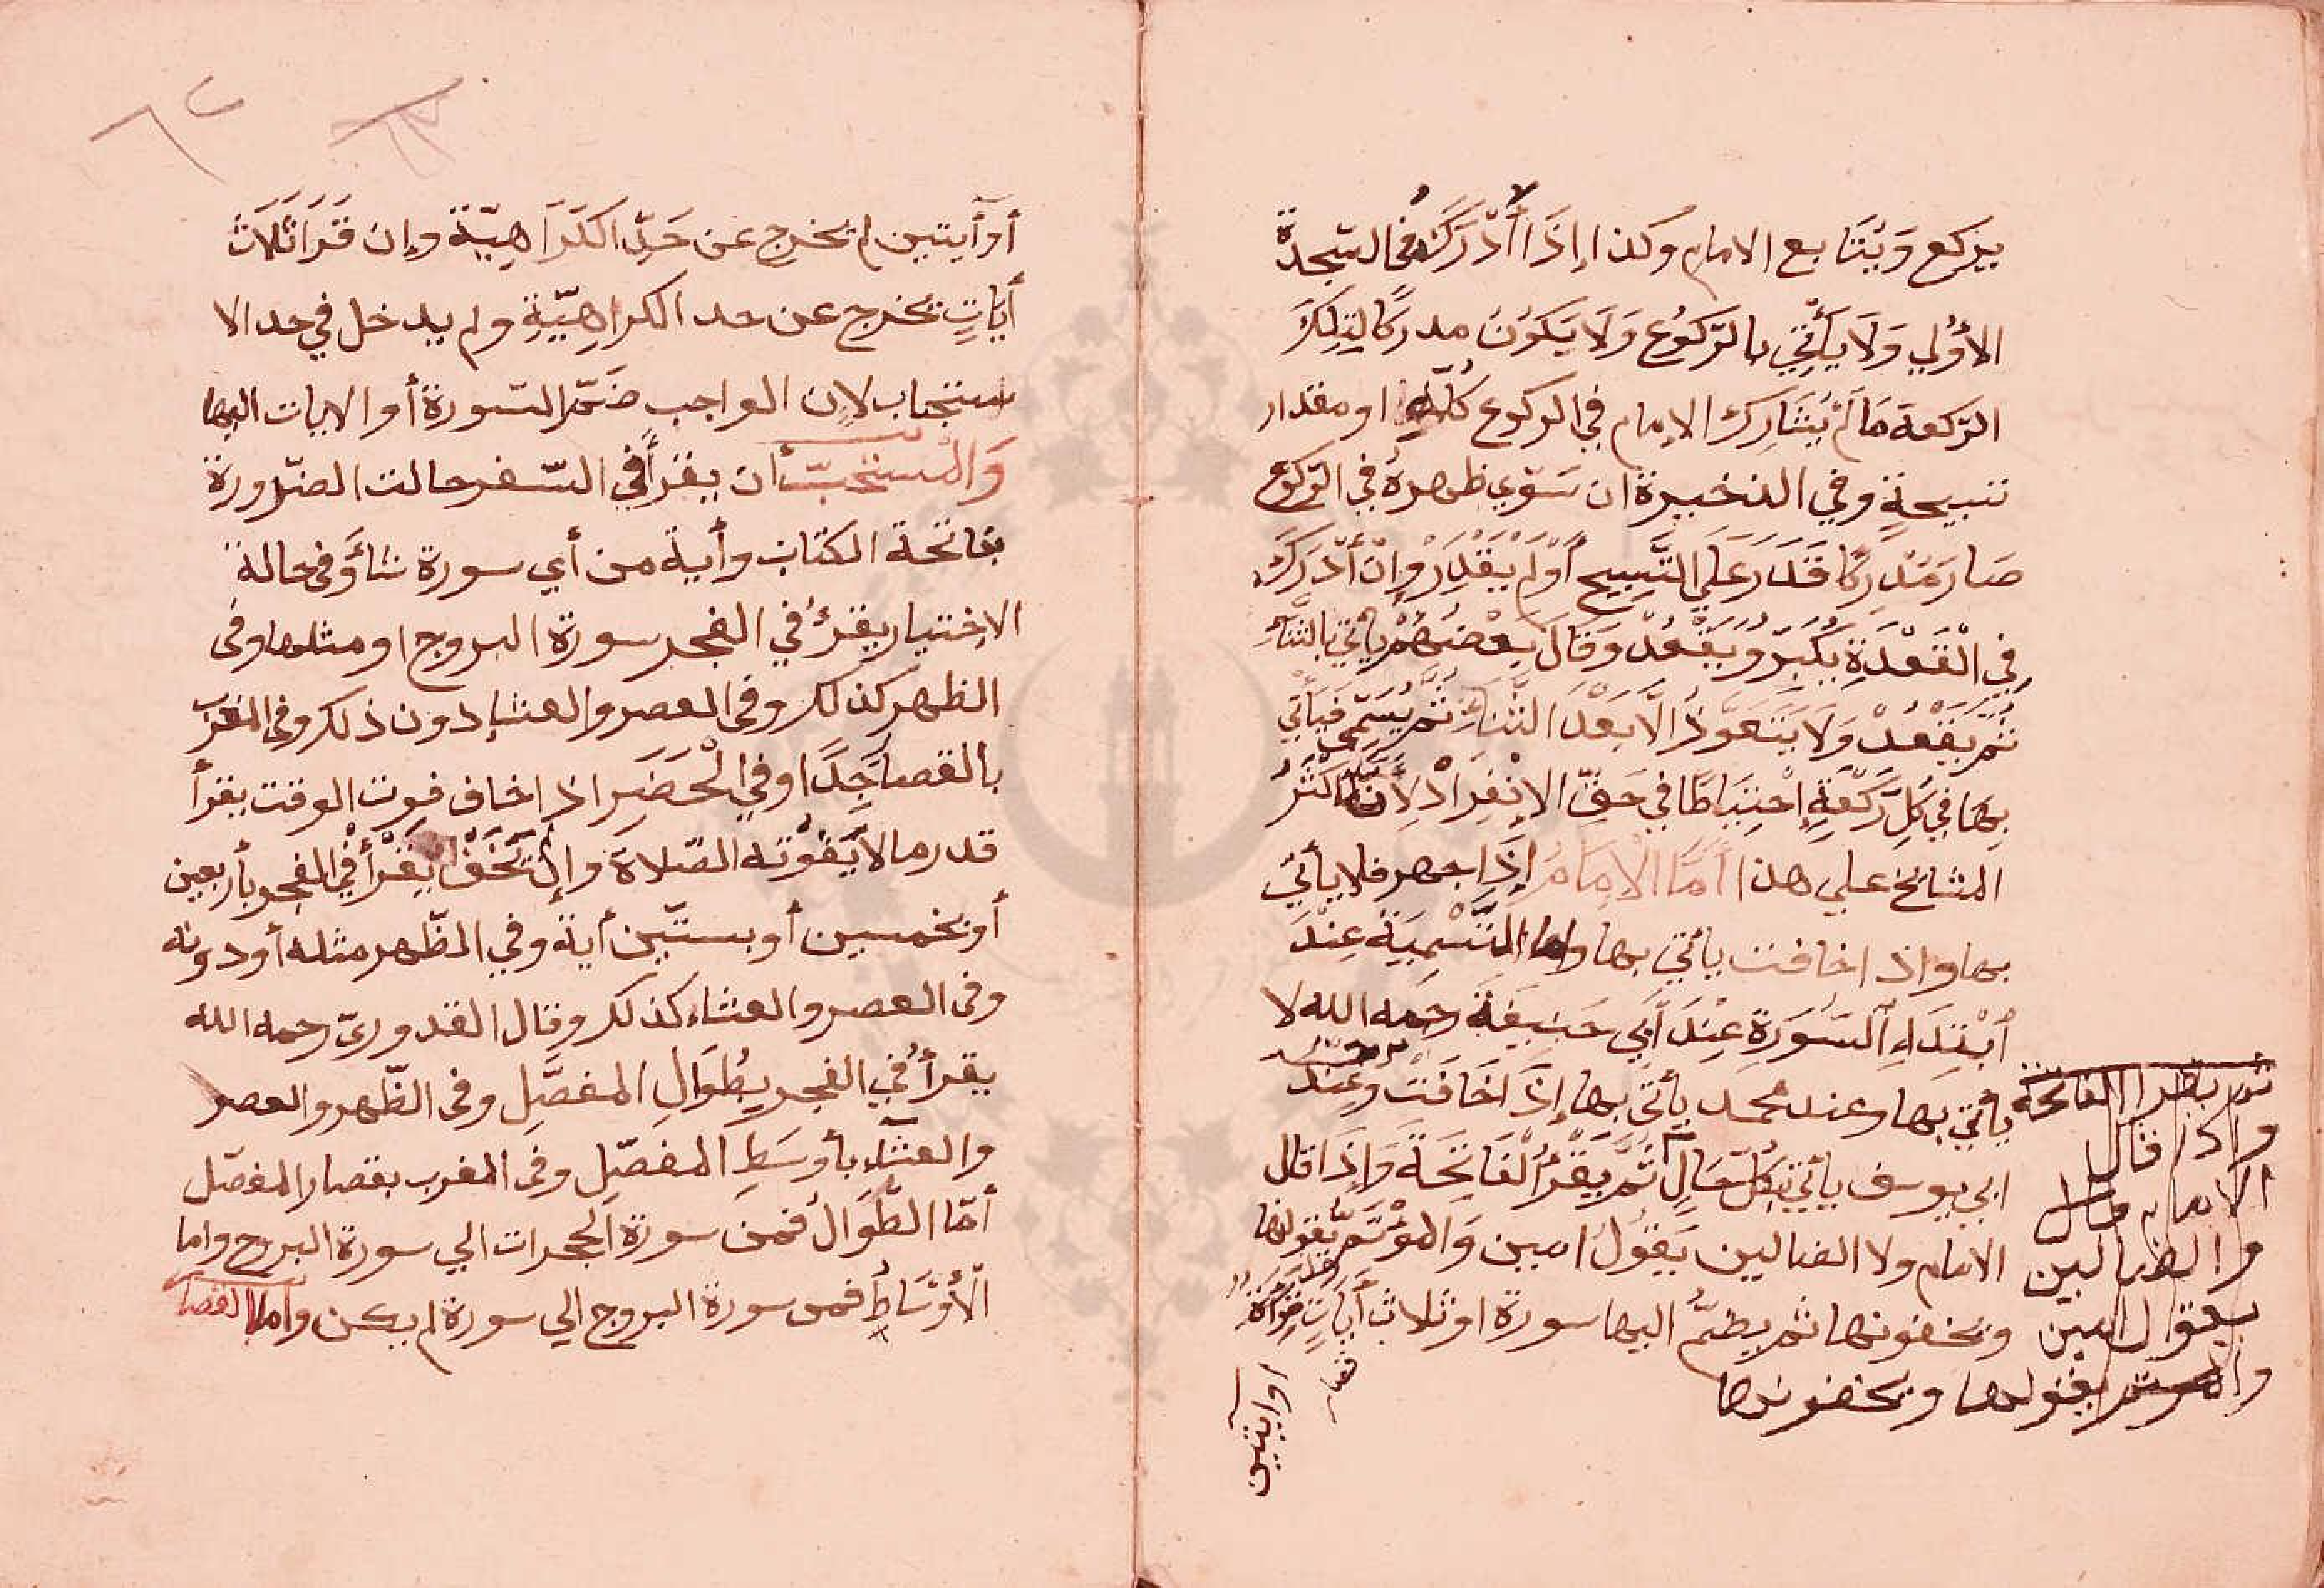 يركع وَيُتَابع الامام وكذا إِذَا أَدْرَكَهُ في السّجدة
الأوْلي وَلَا يَأْتِي بالرّكُوْع وَلَا يَكُوْنُ مدركًا لِتِلْكَ
الرّكعة مَا لَمْ يُشَارِك الإمام في الركوع كُلّهِ او مقدار
تسبيحةٍ وفي الذخيرة ان سَوّي ظهره في الرّكوع
صَار مُدْرِكًا قَدَرَ عَلَي التَّسْبِيحِ أوْلَمْ يَقْدِرْ وإنْ أدْرَكَه
فِي الْقَعْدَةِ يُكَبّرُ وَيَقْعُدُ وَقَالَ بعْضُهُمْ يأتي بالثناءِ
ثُمَّ يَقْعُدْ وَلَا يَتَعَوَّذُ الَّا بَعْدَ الثَّنَاءِ ثُمَّ يُسَمّي فيأتي
بِهَا في كُلِّ رَكْعَةٍ احْتِيَاطًا في حَقِّ الإِنْفِرَادْ لِأَنَّ اَكْثَرُ
المشائخ علي هذا أمّا الْإمَامُ إِذَا جهر فلا يأتي
بها واذا خافت يأتي بها واما التَّسْمِيَةُ عِنْدَ
اُبْتِدَاءِ السُّوْرَةِ عِنْدَ أَبِي حَنِيفَةَ رحمه الله لا
يأتي بها وعند محمد يأتي بها إِذَا خَافَتَ وعِنْدَ
ابي يوسف يأتي بِكُلِّ حَالٍ ثُمَّ يَقْرَأُ الْفَاتِحَةَ وَإِذَا قال
الامام ولا الضالين يَقُوْلُ امين وَالمؤْتَمُّ يقولها
ويخفونها ثم يضمُّ اليها سورة او ثلاث أيَاتٍ
او ايتين
ثم يقرا الفاتحة
واذا قال
الامام
ولا الضالين
يقول امين
والموتم يقولها ويخفونها
أو أيتين لم يخرج عن حَدّ الكَرَاهِيّة وإن قَرَأ ثَلَاثَ
أيَاتٍ يخرج عن حد الكراهِيّةِ ولم يدخل في حد الا
ستحباب لان الواجب ضَمّ السّورة أو الايات اليها
وَالْمُسْتَحَبّ أن يقرأ في السّفر حالت الضّرورة
بفاتحة الكتاب وأية من أي سورة شاء وَفي حالة
الاختيار يقرأُ في الفجر سورة البروج او مثلها وفى
الظهر كذلك وفى العصر والعشاء دون ذلك وفى المغرب
بالقصار جِدًا وفي الْحَضَرِ اذا خاف فوت الوقت يقرأ
قدر ما لا يَفُوْته الصّلاة وإن لم يَخَفْ يَقْرَأُ في الفجر بأربعين
أو بخمسين أو بستّين أية وفي الظّهر مثله أو دونه
وفى العصر والعشاء كذلك وقال القدوريّ رحمه الله
يقرأُ في الفجر بِطُوَالِ المفصَّلِ وفى الظّهر والعصر
والعشاءِ بأوسَطِ المفصّلِ وفى المغرب بقصار المفصّل
أمّا الطِّوَالُ فمن سورة الحجرات الي سورة البروج واما
الأوْسَاطِ فمن سورة البروج الي سورة لم يكن واما القصار